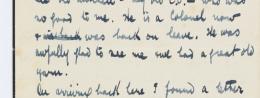 my old C.O. - who was
so good to me. He is a Colonel now
& was back on leave. He was
awfully glad to see me and had a great old
yarn.
On arriving back here I found a letter